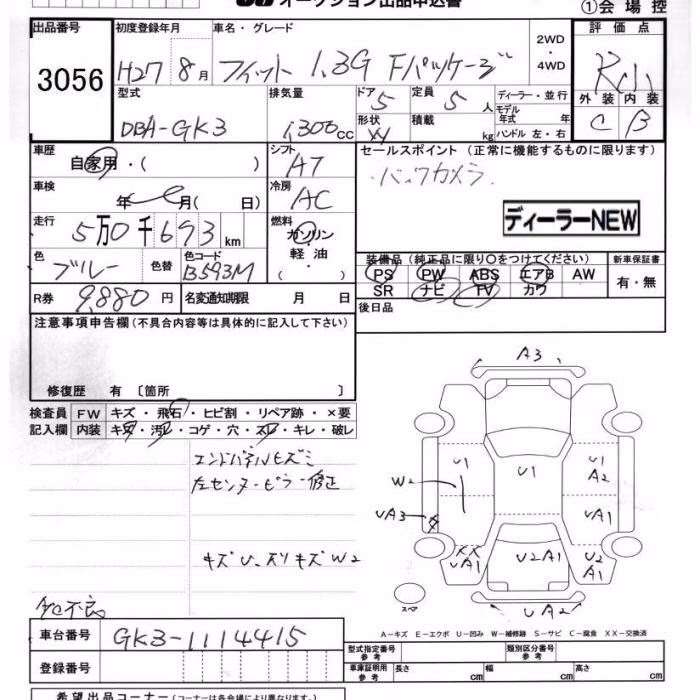 オークション出品申込書 ①会場控
出品番号 初度登録年月 車名・グレード 2WD ・4WD 評価点
3056 H27 8月 フィット 1.3G Fパッケージ R小
型式 排気量 ドア 5 定員 5人 ディーラー・並行 外装 内装
DBA-GK3 1300cc 形状 積載 kg モデル年式 年 ハンドル 左・右 C B
車歴 自家用・( ) シフト AT セールスポイント (正常に機能するものに限ります)
車検 年 月( 日) 冷房 AC バックカメラ
走行 5万0千693km 燃料 ガソリン・軽油・( ) ディーラーNEW
色 ブルー 色替 色コード B593M 装備品 (純正品に限り○をつけてください) 新車保証書
PS PW ABS エアB AW 有・無
SR ナビ TV カワ
R券 9,880円 名変通知期限 月 日 後日品
注意事項申告欄 (不具合内容等は具体的に記入して下さい)
修復歴 有 〔箇所 〕
検査員 FW キズ・飛石・ヒビ割・リペア跡・×要
記入欄 内装 キズ・汚レ・コゲ・穴・スレ・キレ・破レ
エンドパネルヒズミ
左センターピラー修正
キズU、スリキズW2
A3
U1 U1 U1 A2
W2
UA3 UA1
XX UA1 U2A1 U2 A1
スペア UA2
A-キズ E-エクボ U-凹み W-補修跡 S-サビ C-腐食 XX-交換済
車台番号 GK3-1114415 型式指定番号 参考 類別区分番号 参考
登録番号 車庫証明用 参考 長さ cm 幅 cm 高さ cm
希望出品コーナー (コーナーは各会場により異なります。)